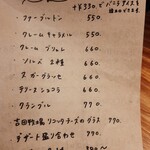 +¥330で バニラアイスを
・ファーブルトン 550.
・クレームキャラメル 550.
・クレームブリュレ 660.
・ソルベ 2種 660.
・ヌガーグラッセ 660.
・テリーヌショコラ 660.
・クランブル 770.
・吉田牧場 リコッタチーズのグラス 770.
・デザート盛り合わせ 990.